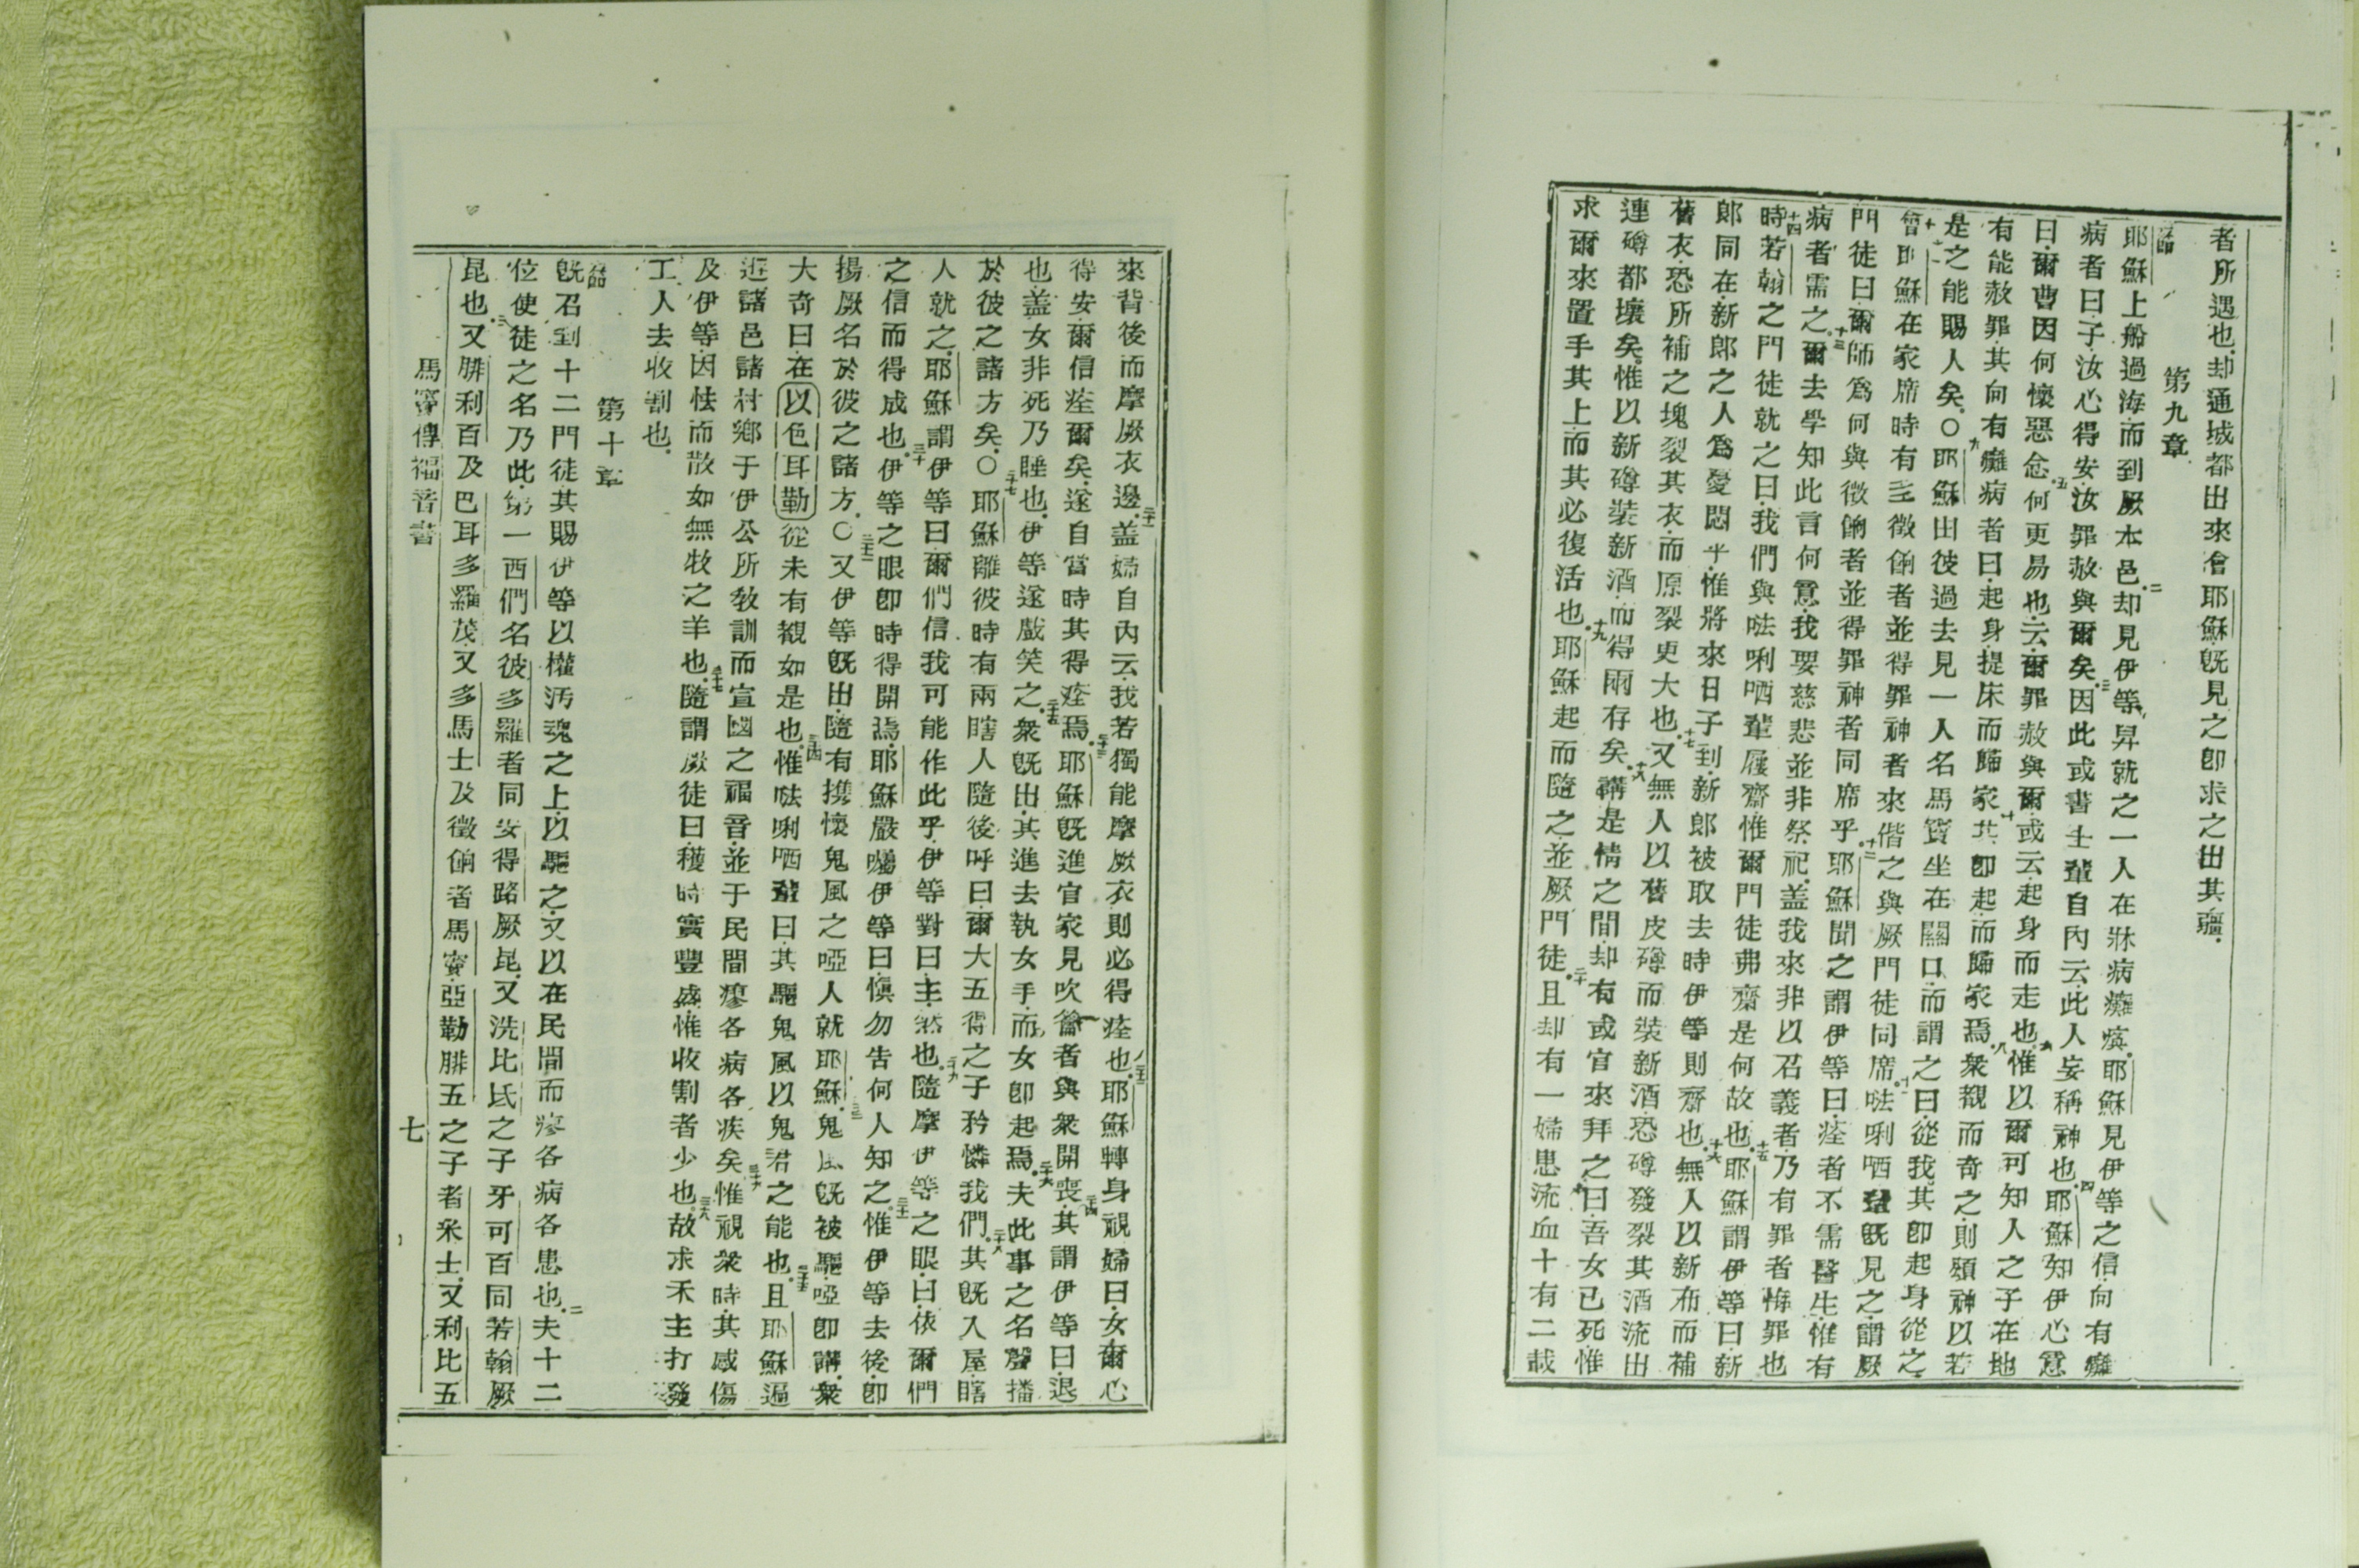 者所遇也却通城都出來會耶穌既見之卽求之出其疆
第九章
耶穌上船過海而到厥本邑二却見伊等舁就之一人在牀病癱瘓耶穌見伊等之信向有癱
病者曰子汝心得安汝罪赦與爾矣三因此或書士輩自內云此人妄稱神也四耶穌知伊心意
曰爾曹因何懷惡念五何更易也云爾罪赦與爾或云起身而走也六惟以爾可知人之子在地
有能赦罪其向有癱病者曰起身提床而歸家七其卽起而歸家焉八衆觀而奇之則頌神以若
是之能賜人矣○九耶穌出彼過去見一人名馬竇坐在關口而謂之曰從我其卽起身從之
十會耶穌在家席時有多徵餉者並得罪神者來偕之與厥門徒同席十一㕸唎哂輩既見之謂厥
門徒曰爾師爲何與徵餉者並得罪神者同席乎十二耶穌聞之謂伊等曰痊者不需醫生惟有
病者需之十三爾去學知此言何意我要慈悲並非祭祀蓋我來非以召義者乃有罪者悔罪也
十四時若翰之門徒就之曰我們與㕸唎哂輩屢齋惟爾門徒弗齋是何故也十五耶穌謂伊等曰新
郞同在新郞之人爲憂悶乎惟將來日子到新郞被取去時伊等則齋也十六無人以新布而補
舊衣恐所補之塊裂其衣而原裂更大也十七又無人以舊皮罇而裝新酒恐罇發裂其酒流出
連罇都壞矣惟以新罇裝新酒而得兩存矣十八講是情之間却有或官來拜之曰吾女已死惟
求爾來置手其上而其必復活也十九耶穌起而隨之並厥門徒二十且却有一婦患流血十有二載
來背後而摩厥衣邊二十一蓋婦自內云我若獨能摩厥衣則必得痊也二十二耶穌轉身視婦曰女爾心
得安爾信痊爾矣遂自當時其得痊焉二十三耶穌既進官家見吹籥者與衆開喪二十四其謂伊等曰退
也蓋女非死乃睡也伊等遂戲笑之二十五衆既出其進去執女手而女卽起焉二十六夫此事之名聲播
於彼之諸方矣○二十七耶穌離彼時有兩瞎人隨後呼曰爾大五得之子矜憐我們二十八其既入屋瞎
人就之耶穌謂伊等曰爾們信我可能作此乎伊等對曰主然也二十九隨摩伊等之眼曰依爾們
之信而得成也三十伊等之眼卽時得開焉耶穌嚴囑伊等曰愼勿告何人知之三十一惟伊等去後卽
揚厥名於彼之諸方○三十二又伊等既出隨有携懷鬼風之啞人就耶穌三十三鬼風既被驅啞卽講衆
大奇曰在以色耳勒從未有觀如是也三十四惟㕸唎哂輩曰其驅鬼風以鬼君之能也三十五且耶穌遍
遊諸邑諸村鄉于伊公所敎訓而宣國之福音並于民間瘳各病各疾矣三十六惟視衆時其感傷
及伊等因怯而散如無牧之羊也三十七隨謂厥徒曰穫時實豐盛惟收割者少也三十八故求禾主打發
工人去收割也
第十章
既召到十二門徒其賜伊等以權汚魂之上以驅之又以在民間而瘳各病各患也二夫十二
位使徒之名乃此第一西們名彼多羅者同安得路厥昆又洗比氐之子牙可百同若翰厥
昆也三又腓利百及巴耳多羅茂又多馬士及徵餉者馬竇亞勒腓五之子者米士又利比五
馬竇傳福音書
七